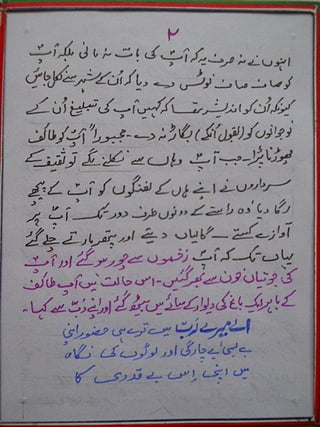 ۲
انہوں نے نہ صرف یہ کہ آپؐ کی بات نہ مانی بلکہ آپؐ
کو صاف صاف نوٹس دے دیا کہ اُن کے شہر سے نکل جائیں
کیونکہ اُن کو اندیشہ تھا کہ کہیں آپ کی تبلیغ اُن کے
نوجوانوں کو (بقول اُنکے) بگاڑ نہ دے۔ مجبوراً آپؐ کو طائف
چھوڑنا پڑا۔ جب آپؐ وہاں سے نکلنے لگے تو ثقیف کے
سرداروں نے اپنے ہاں کے لفنگوں کو آپؐ کے پیچھے
لگا دیا وہ راستے کے دونوں طرف دور تک آپؐ پر
آوازے کستے۔ گالیاں دیتے اور پتھر مارتے چلے گئے
یہاں تک کہ آپؐ زخموں سے چور ہو گئے اور آپؐ
کی جوتیاں خون سے بھر گئیں۔ اس حالت میں آپ طائف
کے باہر ایک باغ کی دیوار کے سائے میں بیٹھ گئے اور اپنے ربّ سے کہا۔
اَے میرے رَبّ میں تیرے ہی حضور اپنی
بے بسی بے چارگی اور لوگوں کی نگاہ
میں اپنی اِس بے قدری کا